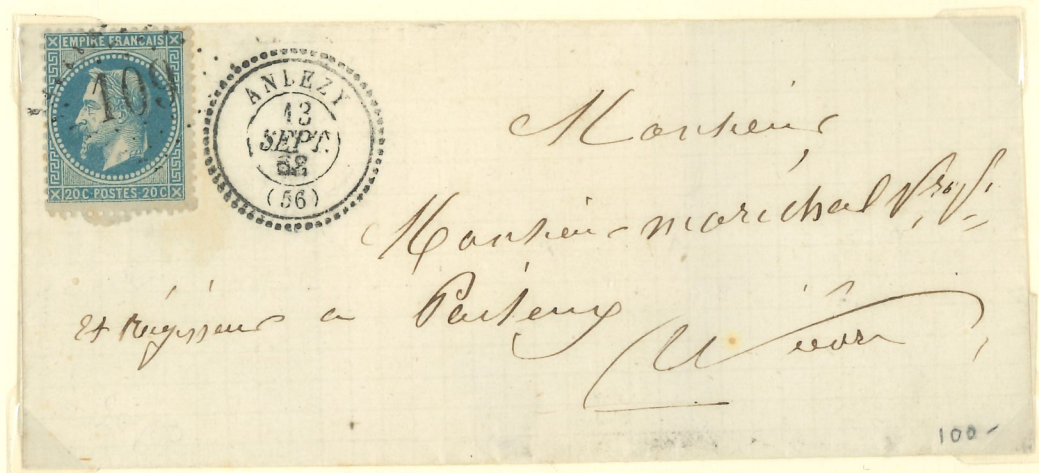 EMPIRE FRANCAIS
109
20C-POSTES-20C
ANLEZY
13
SEPT.
68
(56)
Monsieur
Monsieur maréchal
et Régisseur a
Nièvre
100-